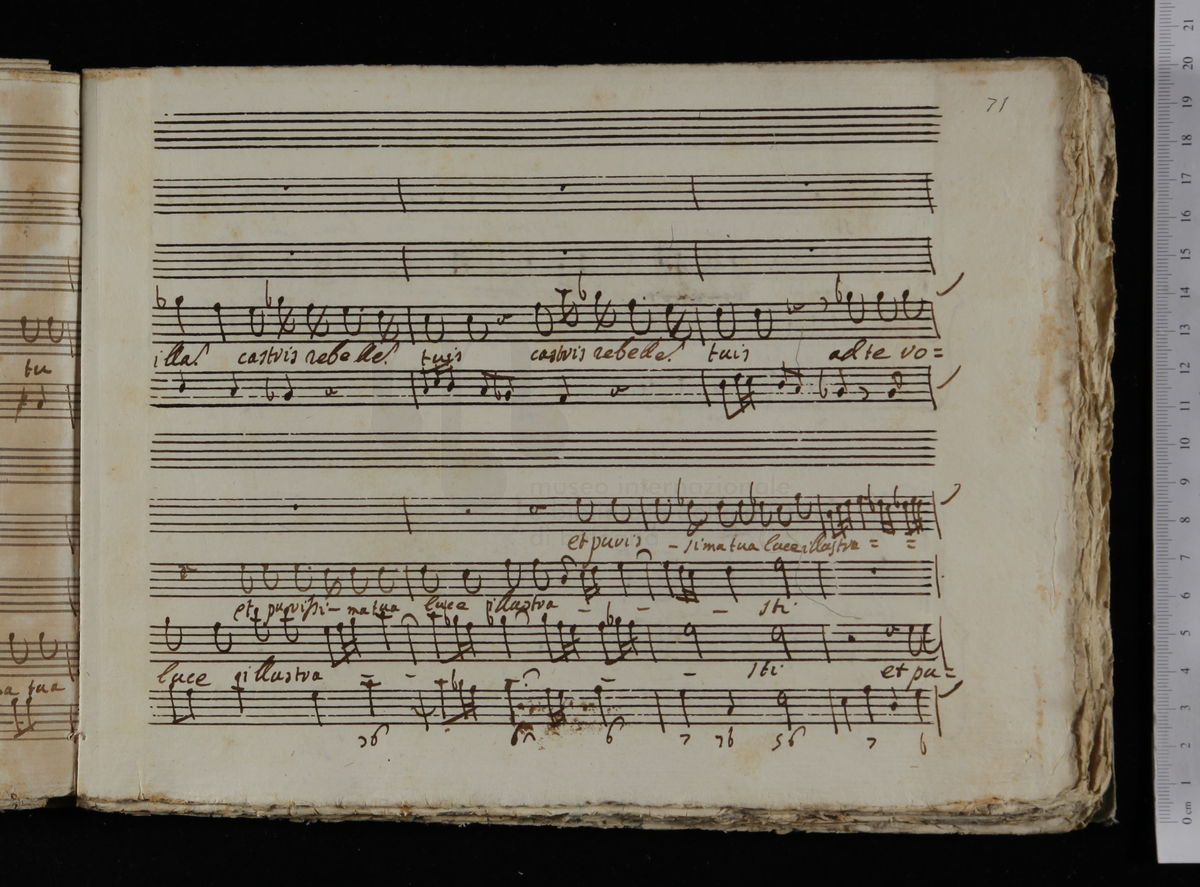 71
illas castris rebelles tuis castris rebelles tuis ad te vo=
museo internazionale
et puris - sima tua luce illastra = =
et purissi - ma tua luce illustra - - - sti
tu
luce illustra - - - sti et pu=
tua
76 6 6 7 76 56 7 6
0 cm 1 2 3 4 5 6 7 8 9 10 11 12 13 14 15 16 17 18 19 20 21